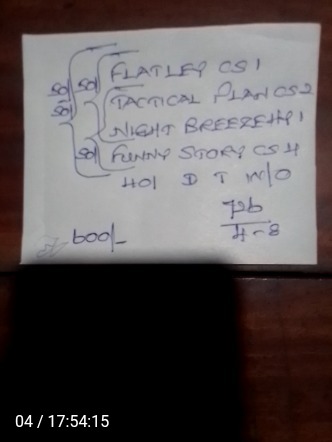 50/ 50/ FLATLEY CS1
50/ TACTICAL PLAN CS2
NIGHT BREEZE HY1
50/ FUNNY STORY CS4
40/ D T W/O
600/-
4-8
04 / 17:54:15